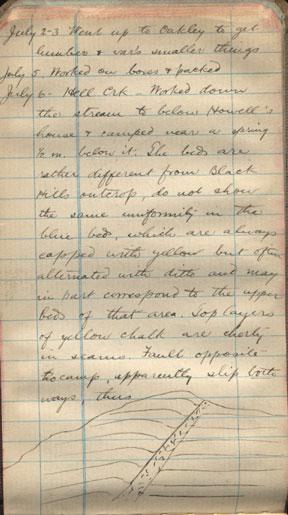 July 2-3 Went up to Oakley to get
lumber & var's smaller things
July 5. Worked on boxes & packed
July 6 - Hell Crk - Worked down
the stream to below Howell's
house & camped near a spring
½ m. below it. The beds are
rather different from Black
Hills outcrop, do not show
the same uniformity in the
blue beds, which are always
capped with yellow but often
alternated with ditto and may
in part correspond to the upper
beds of that area. Top layers
of yellow chalk are cherty
in seams. Fault opposite
to camp, apparently slip both
ways, thus